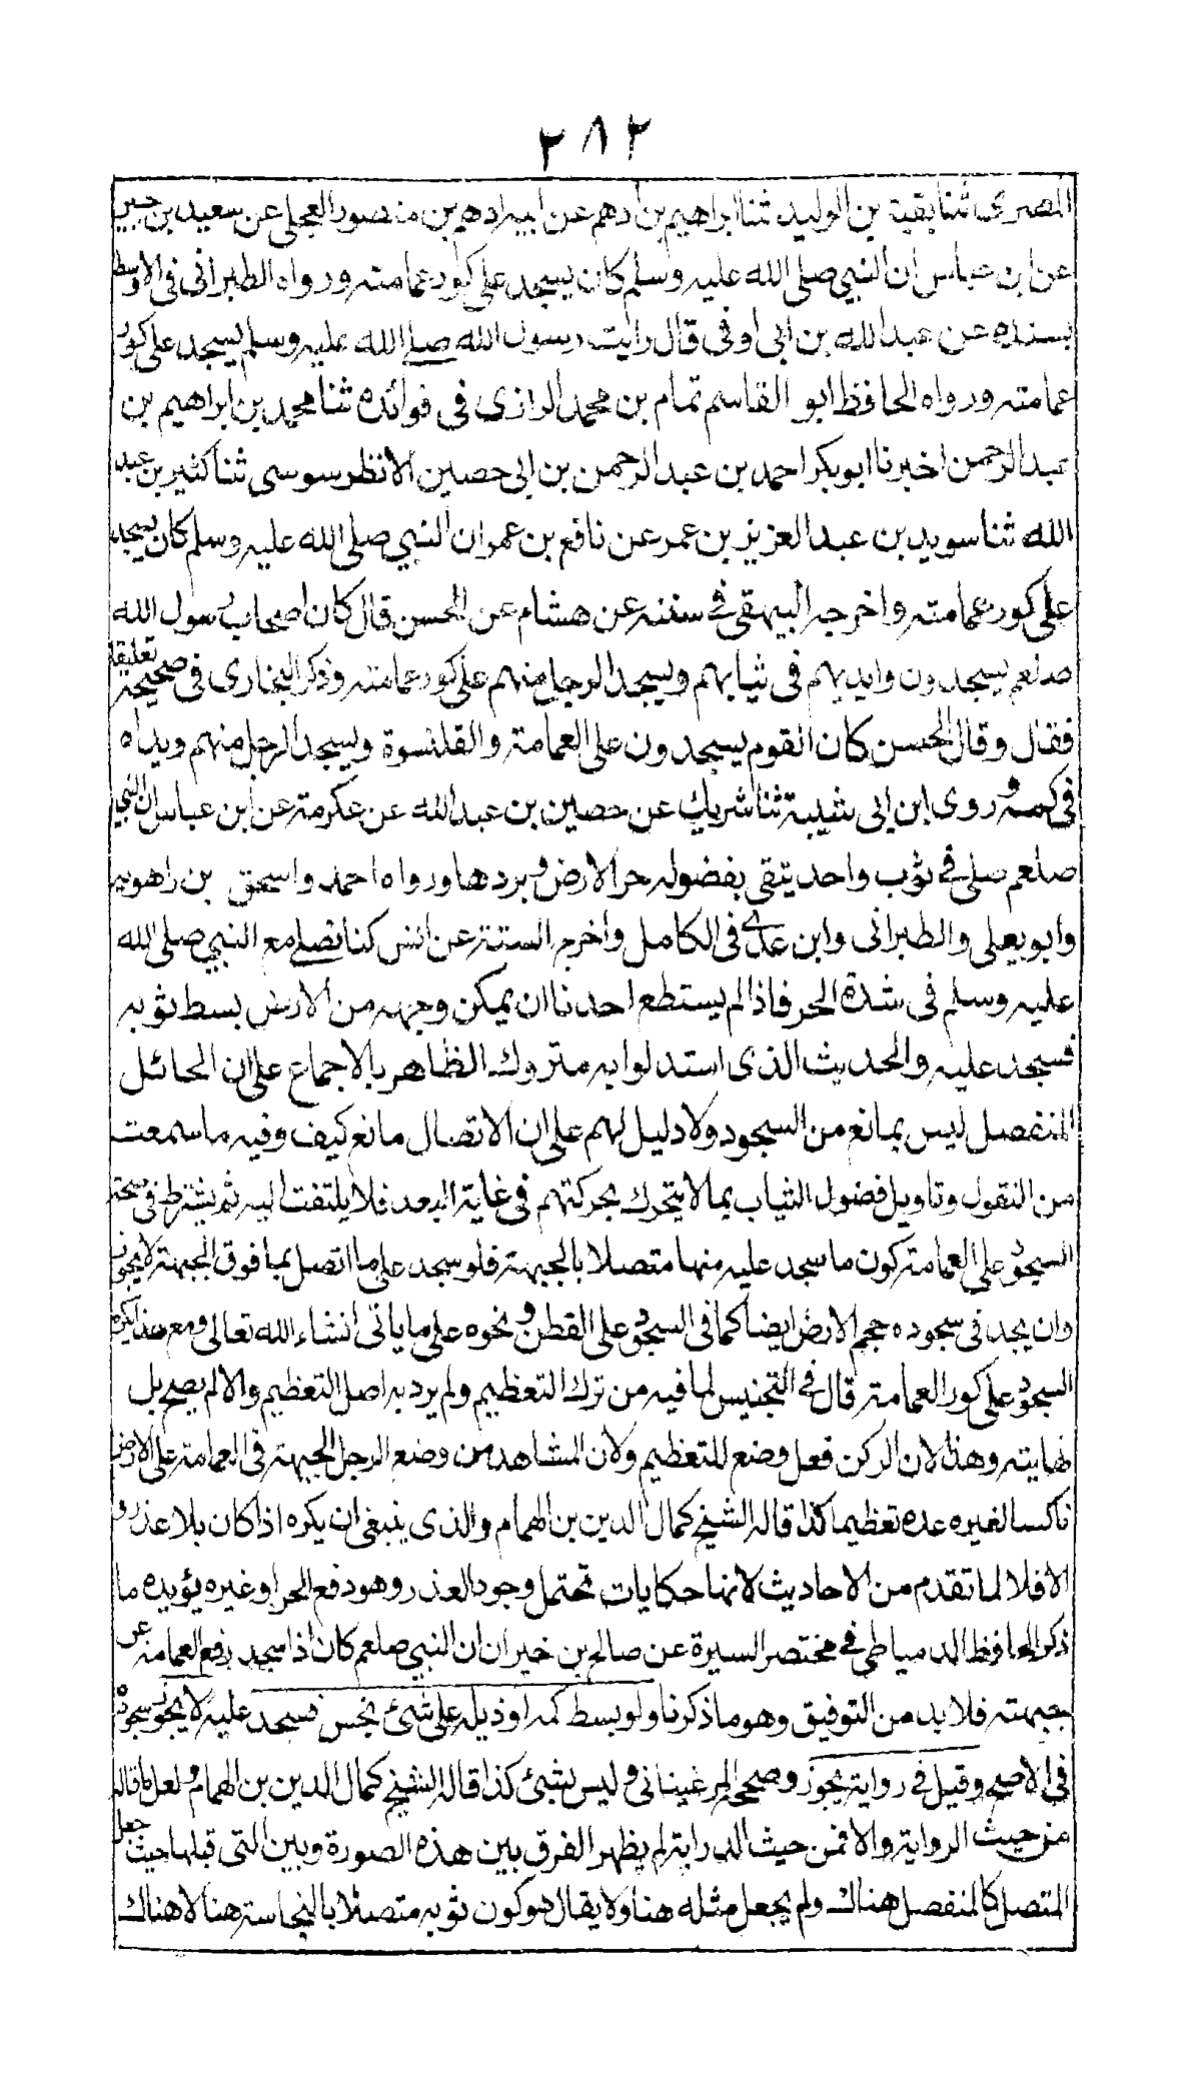 ٢٨٢
المصرى ثنا بقية بن الوليد ثنا ابراهيم بن ادهم عن ابيه ادهم بن منصور العجلى عن سعيد بن جبير
عن ابن عباس ان النبي صلى الله عليه وسلم كان يسجد على كور عمامته ورواه الطبرانى فى الاوسط
بسنده عن عبد الله بن ابى اوفى قال رايت رسول الله صلے الله عليه وسلم يسجد على كور
عمامته ورواه الحافظ ابو القاسم تمام بن محمد الرازى فى فوائده ثنا محمد بن ابراهيم بن
عبد الرحمن اخبرنا ابو بكر احمد بن عبد الرحمن بن ابى حصين الانظرسوسى ثنا كثير بن عبد
الله ثنا سويد بن عبد العزيز بن عمر عن نافع بن عمر ان النبي صلى الله عليه وسلم كان يسجد
على كور عمامته واخرجه البيهقى فے سننه عن هشام عن الحسن قال كان اصحاب رسول الله
صلعم يسجدون وايديهم فى ثيابهم ويسجد الرجل منهم على كور عمامته وذكر البخارى فى صحيحه تعليقا
فقال وقال الحسن كان القوم يسجدون على العمامة والقلنسوة ويسجد الرجل منهم ويداه
فى كمه وروى ابن ابى شيبة ثنا شريك عن حصين بن عبد الله عن عكرمة عن ابن عباس ان النبي
صلعم صلى فے ثوب واحد يتقى بفضوله حر الارض وبردها ورواه احمد واسحق بن راهويه
وابو يعلى والطبرانى وابن عدے فى الكامل واخرج الستة عن انس كنا نصلے مع النبي صلى الله
عليه وسلم فى شدة الحر فاذا لم يستطع احدنا ان يمكن وجهه من الارض بسط ثوبه
فسجد عليه والحديث الذى استدلوا به متروك الظاهر بالاجماع على ان الحائل
المنفصل ليس بمانع من السجود ولا دليل لهم على ان الاتصال مانع كيف وفيه ما سمعت
من النقول وتاويل فضول الثياب بما لا يتحرك بحركتهم فى غاية البعد فلا يلتفت اليه ثم يشترط فى صحة
السجود على العمامة كون ما سجد عليه منها متصلا بالجبهة فلو سجد على ما اتصل بما فوق الجبهة لا يجوز
وان يجد فى سجوده حجم الارض ايضا كما فى السجود على القطن ونحوه على ما ياتى انشاء الله تعالى ومع هذا يكره
السجود على كور العمامة قال فے التجنيس لما فيه من ترك التعظيم ولم يرد به اصل التعظيم والا لم يصح بل
نهايته وهذا لان الركن فعل وضع للتعظيم ولان المشاهد من وضع الرجل الجبهة فى العمامة على الارض
ناكسا لغيره عده تعظيما كذا قاله الشيخ كمال الدين بن الهمام والذى ينبغى ان يكره اذا كان بلا عذر و
الا فلا لما تقدم من الاحاديث لانها حكايات تحتمل وجود العذر وهو دفع الحر او غيره يؤيده ما
ذكر الحافظ الدمياطى فے مختصر السيرة عن صالح بن خيران ان النبي صلعم كان اذا سجد رفع العمامة عن
جبهته فلا بد من التوفيق وهو ما ذكرنا ولو بسط كمه او ذيله على شئ نجس فسجد عليه لا يجوز سجوده
فى الاصح وقيل فے رواية يجوز وصححه المرغينانى وليس بشئ كذا قاله الشيخ كمال الدين بن الهمام ولعل ما قاله
من حيث الرواية والا فمن حيث الدراية لم يظهر الفرق بين هذه الصورة وبين التى قبلها حيث جعل
المتصل كالمنفصل هناك ولم يجعل مثله هنا ولا يقال هو كون ثوبه متصلا بالنجاسة هنا لا هناك